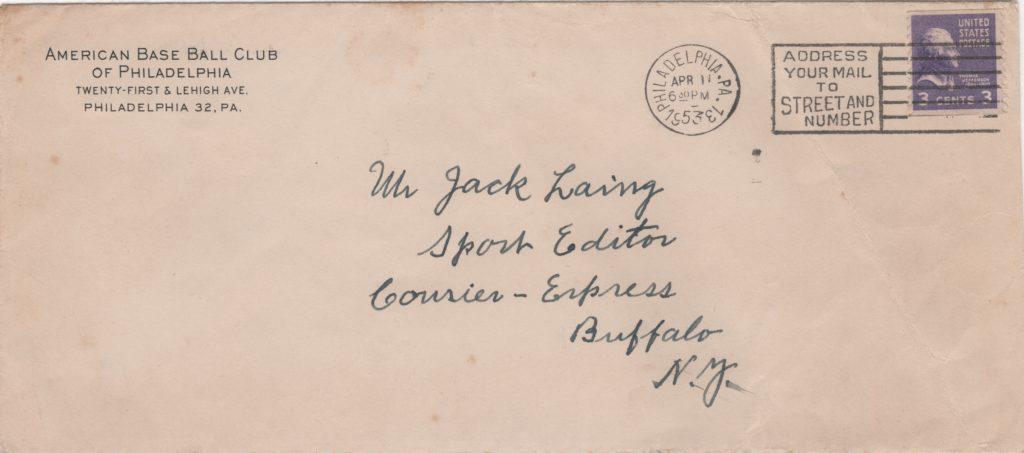 AMERICAN BASE BALL CLUB
OF PHILADELPHIA
TWENTY-FIRST & LEHIGH AVE.
PHILADELPHIA 32, PA.
PHILADELPHIA, PA. 13
APR 11
6 30 PM
1953
ADDRESS
YOUR MAIL
TO
STREET AND
NUMBER
UNITED
STATES
POSTAGE
THOMAS
JEFFERSON
3 CENTS 3
Mr Jack Laing
Sport Editor
Courier - Express
Buffalo
N.Y.